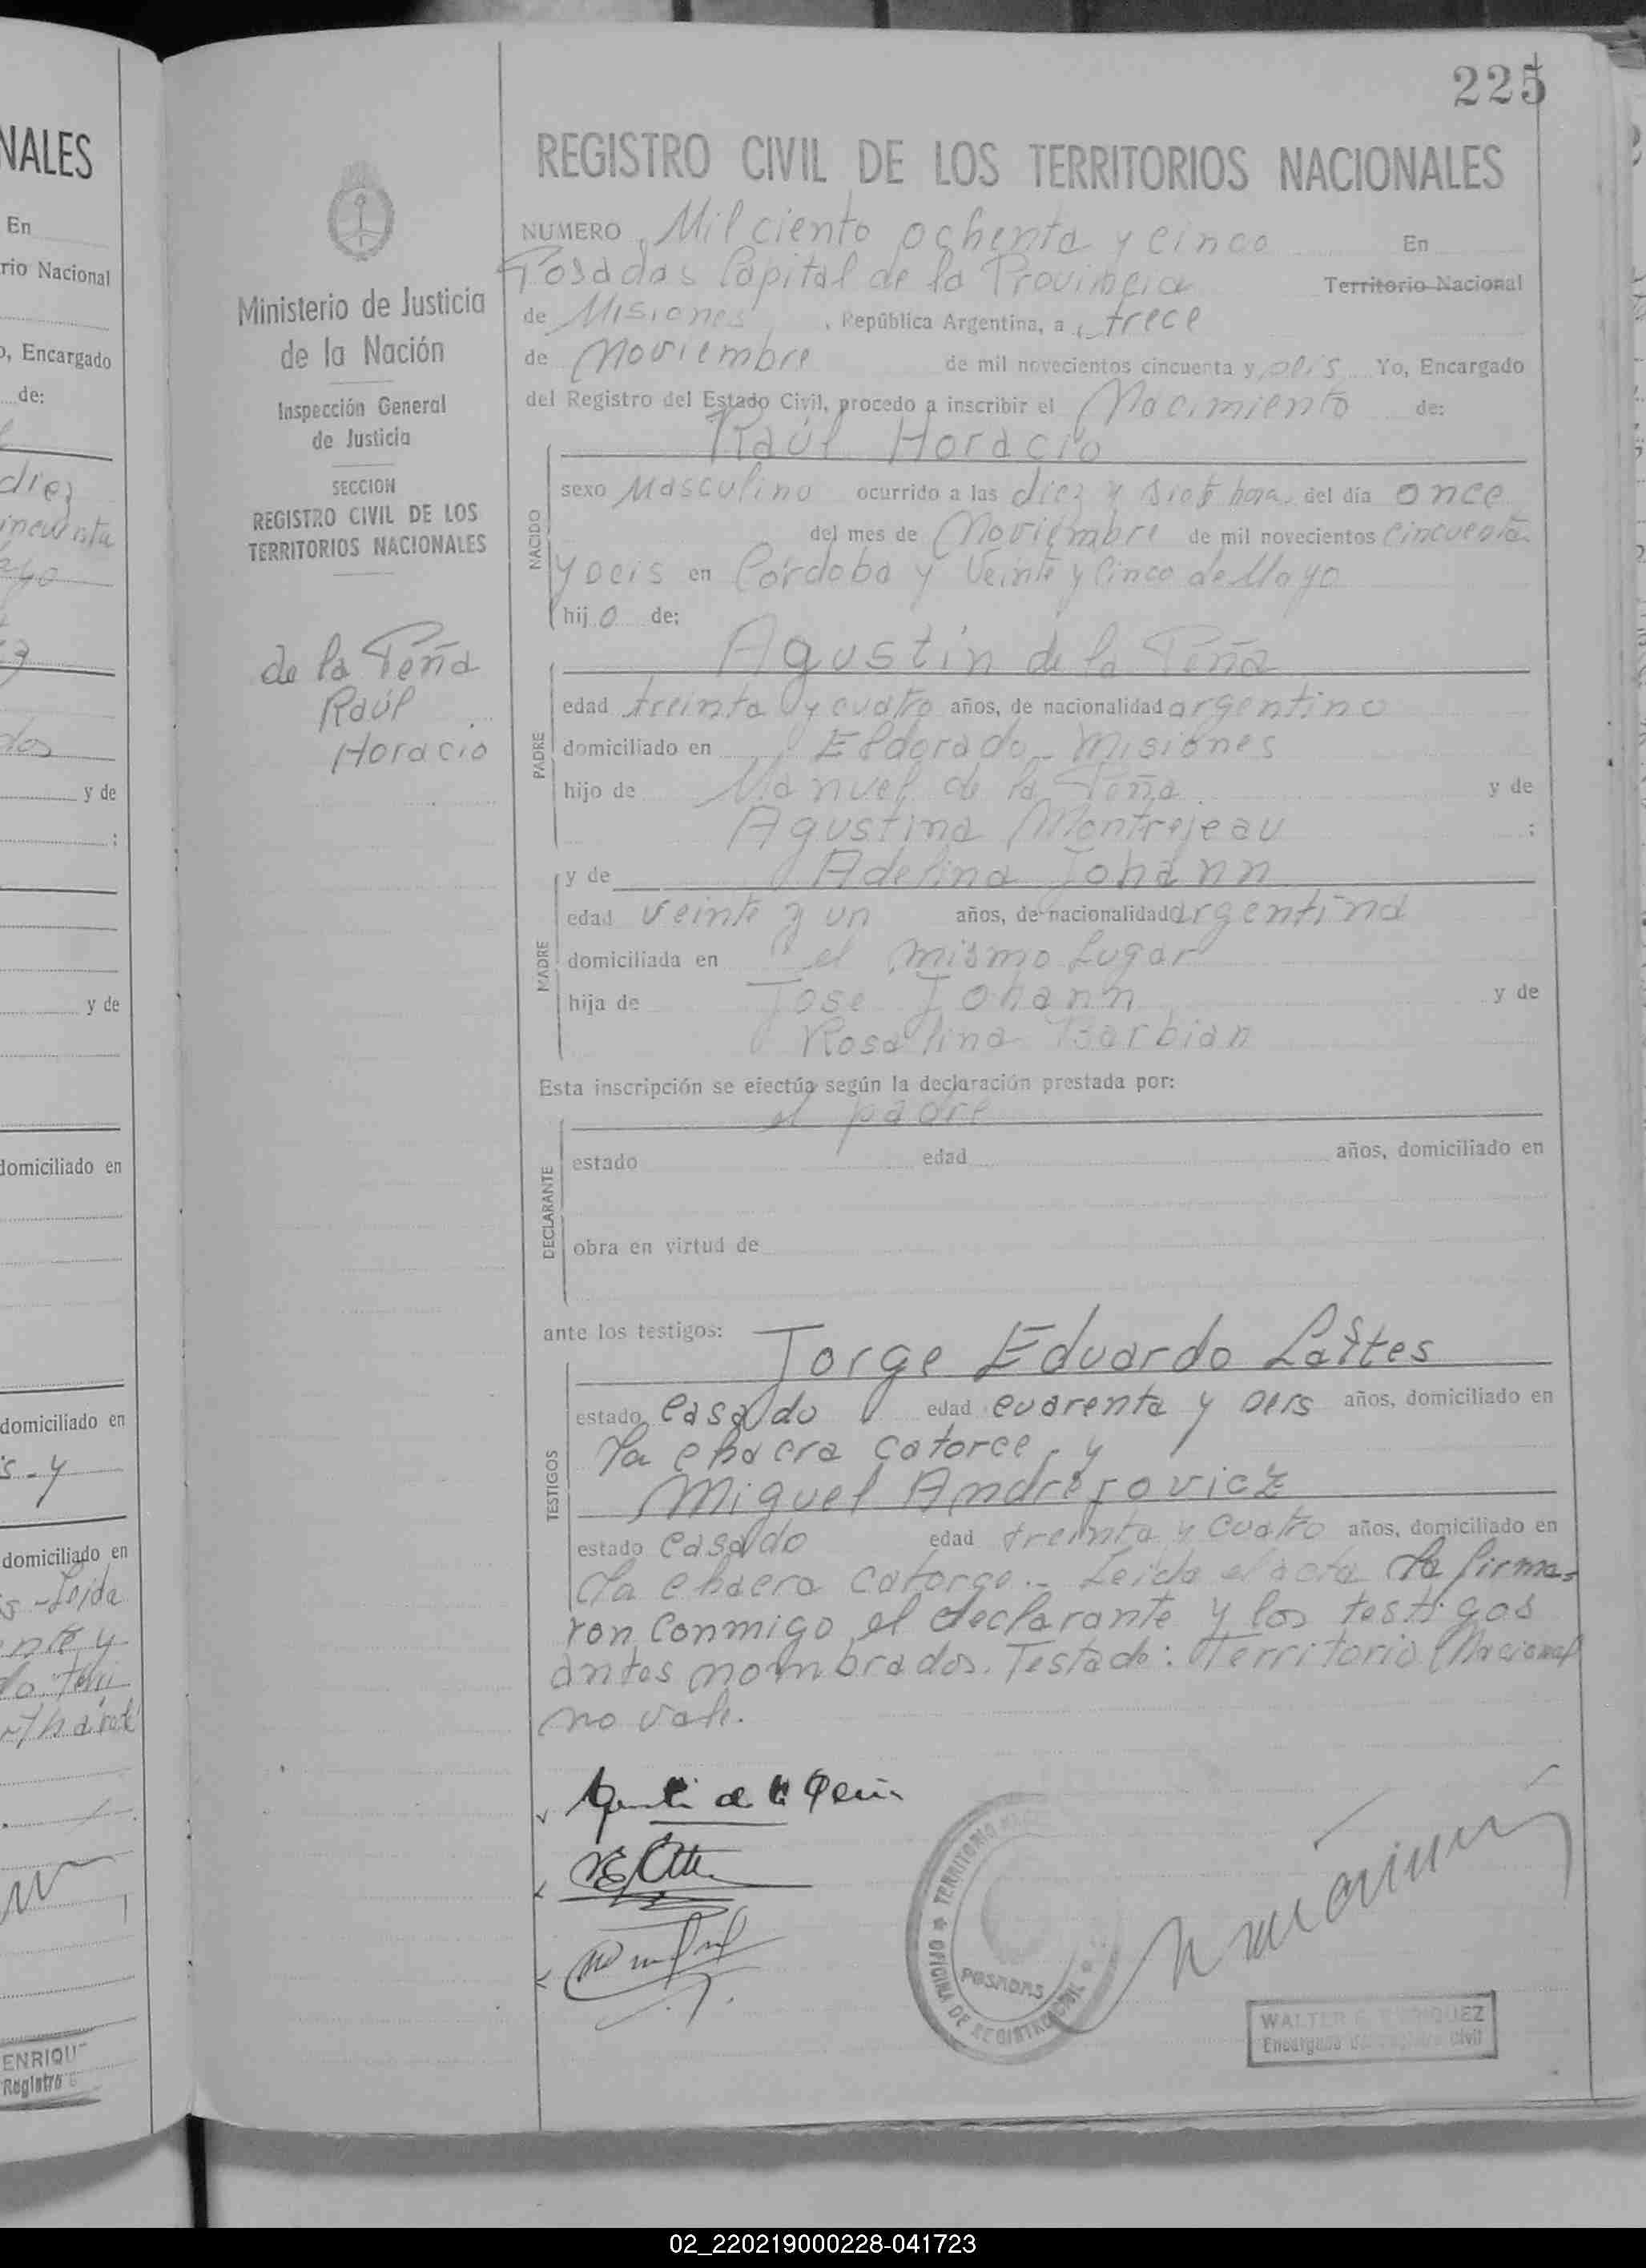 NALES
En
rio Nacional
o, Encargado
de:
diez
incuenta
dos
y de
;
y de
domiciliado en
domiciliado en
s - y
domiciliado en
s - Leida
ENRIQU
Registro
Ministerio de Justicia
de la Nación
Inspección General
de Justicia
SECCION
REGISTRO CIVIL DE LOS
TERRITORIOS NACIONALES
de la Peña
Raúl
Horacio
225
REGISTRO CIVIL DE LOS TERRITORIOS NACIONALES
NUMERO Mil ciento ochenta y cinco En
Posadas Capital de la Provincia Territorio Nacional
de Misiones, República Argentina, a trece
de Noviembre de mil novecientos cincuenta y seis Yo, Encargado
del Registro del Estado Civil, procedo a inscribir el Nacimiento de:
Raúl Horacio
NACIDO
sexo Masculino ocurrido a las diez y siete horas del día once
del mes de Noviembre de mil novecientos cincuenta
y seis en Córdoba y Veinte y Cinco de Mayo
hijo de:
Agustín de la Peña
PADRE
edad treinta y cuatro años, de nacionalidad argentino
domiciliado en Eldorado - Misiones
hijo de Manuel de la Peña y de
Agustina Montrejeau ;
y de Adelina Johann
MADRE
edad veinte y un años, de nacionalidad argentina
domiciliada en el mismo lugar
hija de José Johann y de
Rosalina Barbian
Esta inscripción se efectúa según la declaración prestada por:
el padre
DECLARANTE
estado edad años, domiciliado en
obra en virtud de
ante los testigos:
Jorge Eduardo
TESTIGOS
estado casado edad cuarenta y seis años, domiciliado en
la chacra catorce, y
Miguel
estado casado edad treinta y cuatro años, domiciliado en
la chacra catorce.- Leida el acta la firma-
ron conmigo el declarante y los testigos
antes nombrados. Testado: Territorio Nacional
no vale.
TERRITORIO
OFICINA DE REGISTRO CIVIL
POSADAS
WALTER E. ENRIQUEZ
Encargado del Registro Civil
02_220219000228-041723